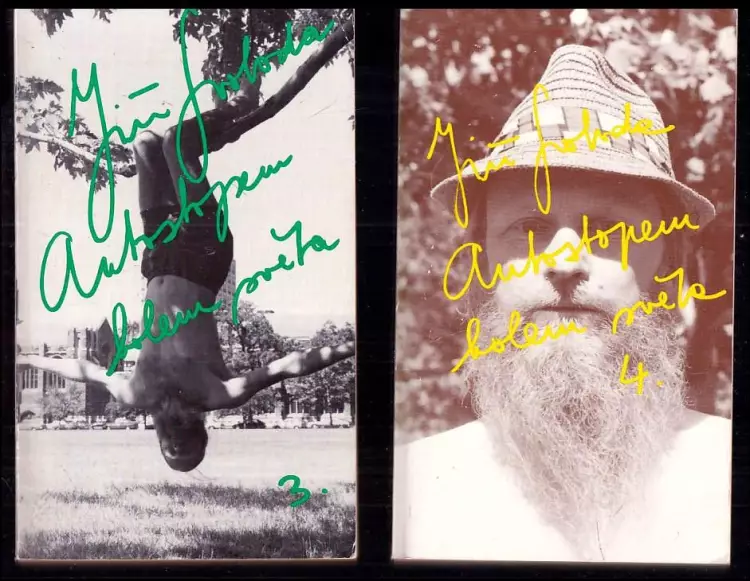 Jiří Svoboda
Autostopem
kolem světa
3.
Jiří Svoboda
Autostopem
kolem světa
4.